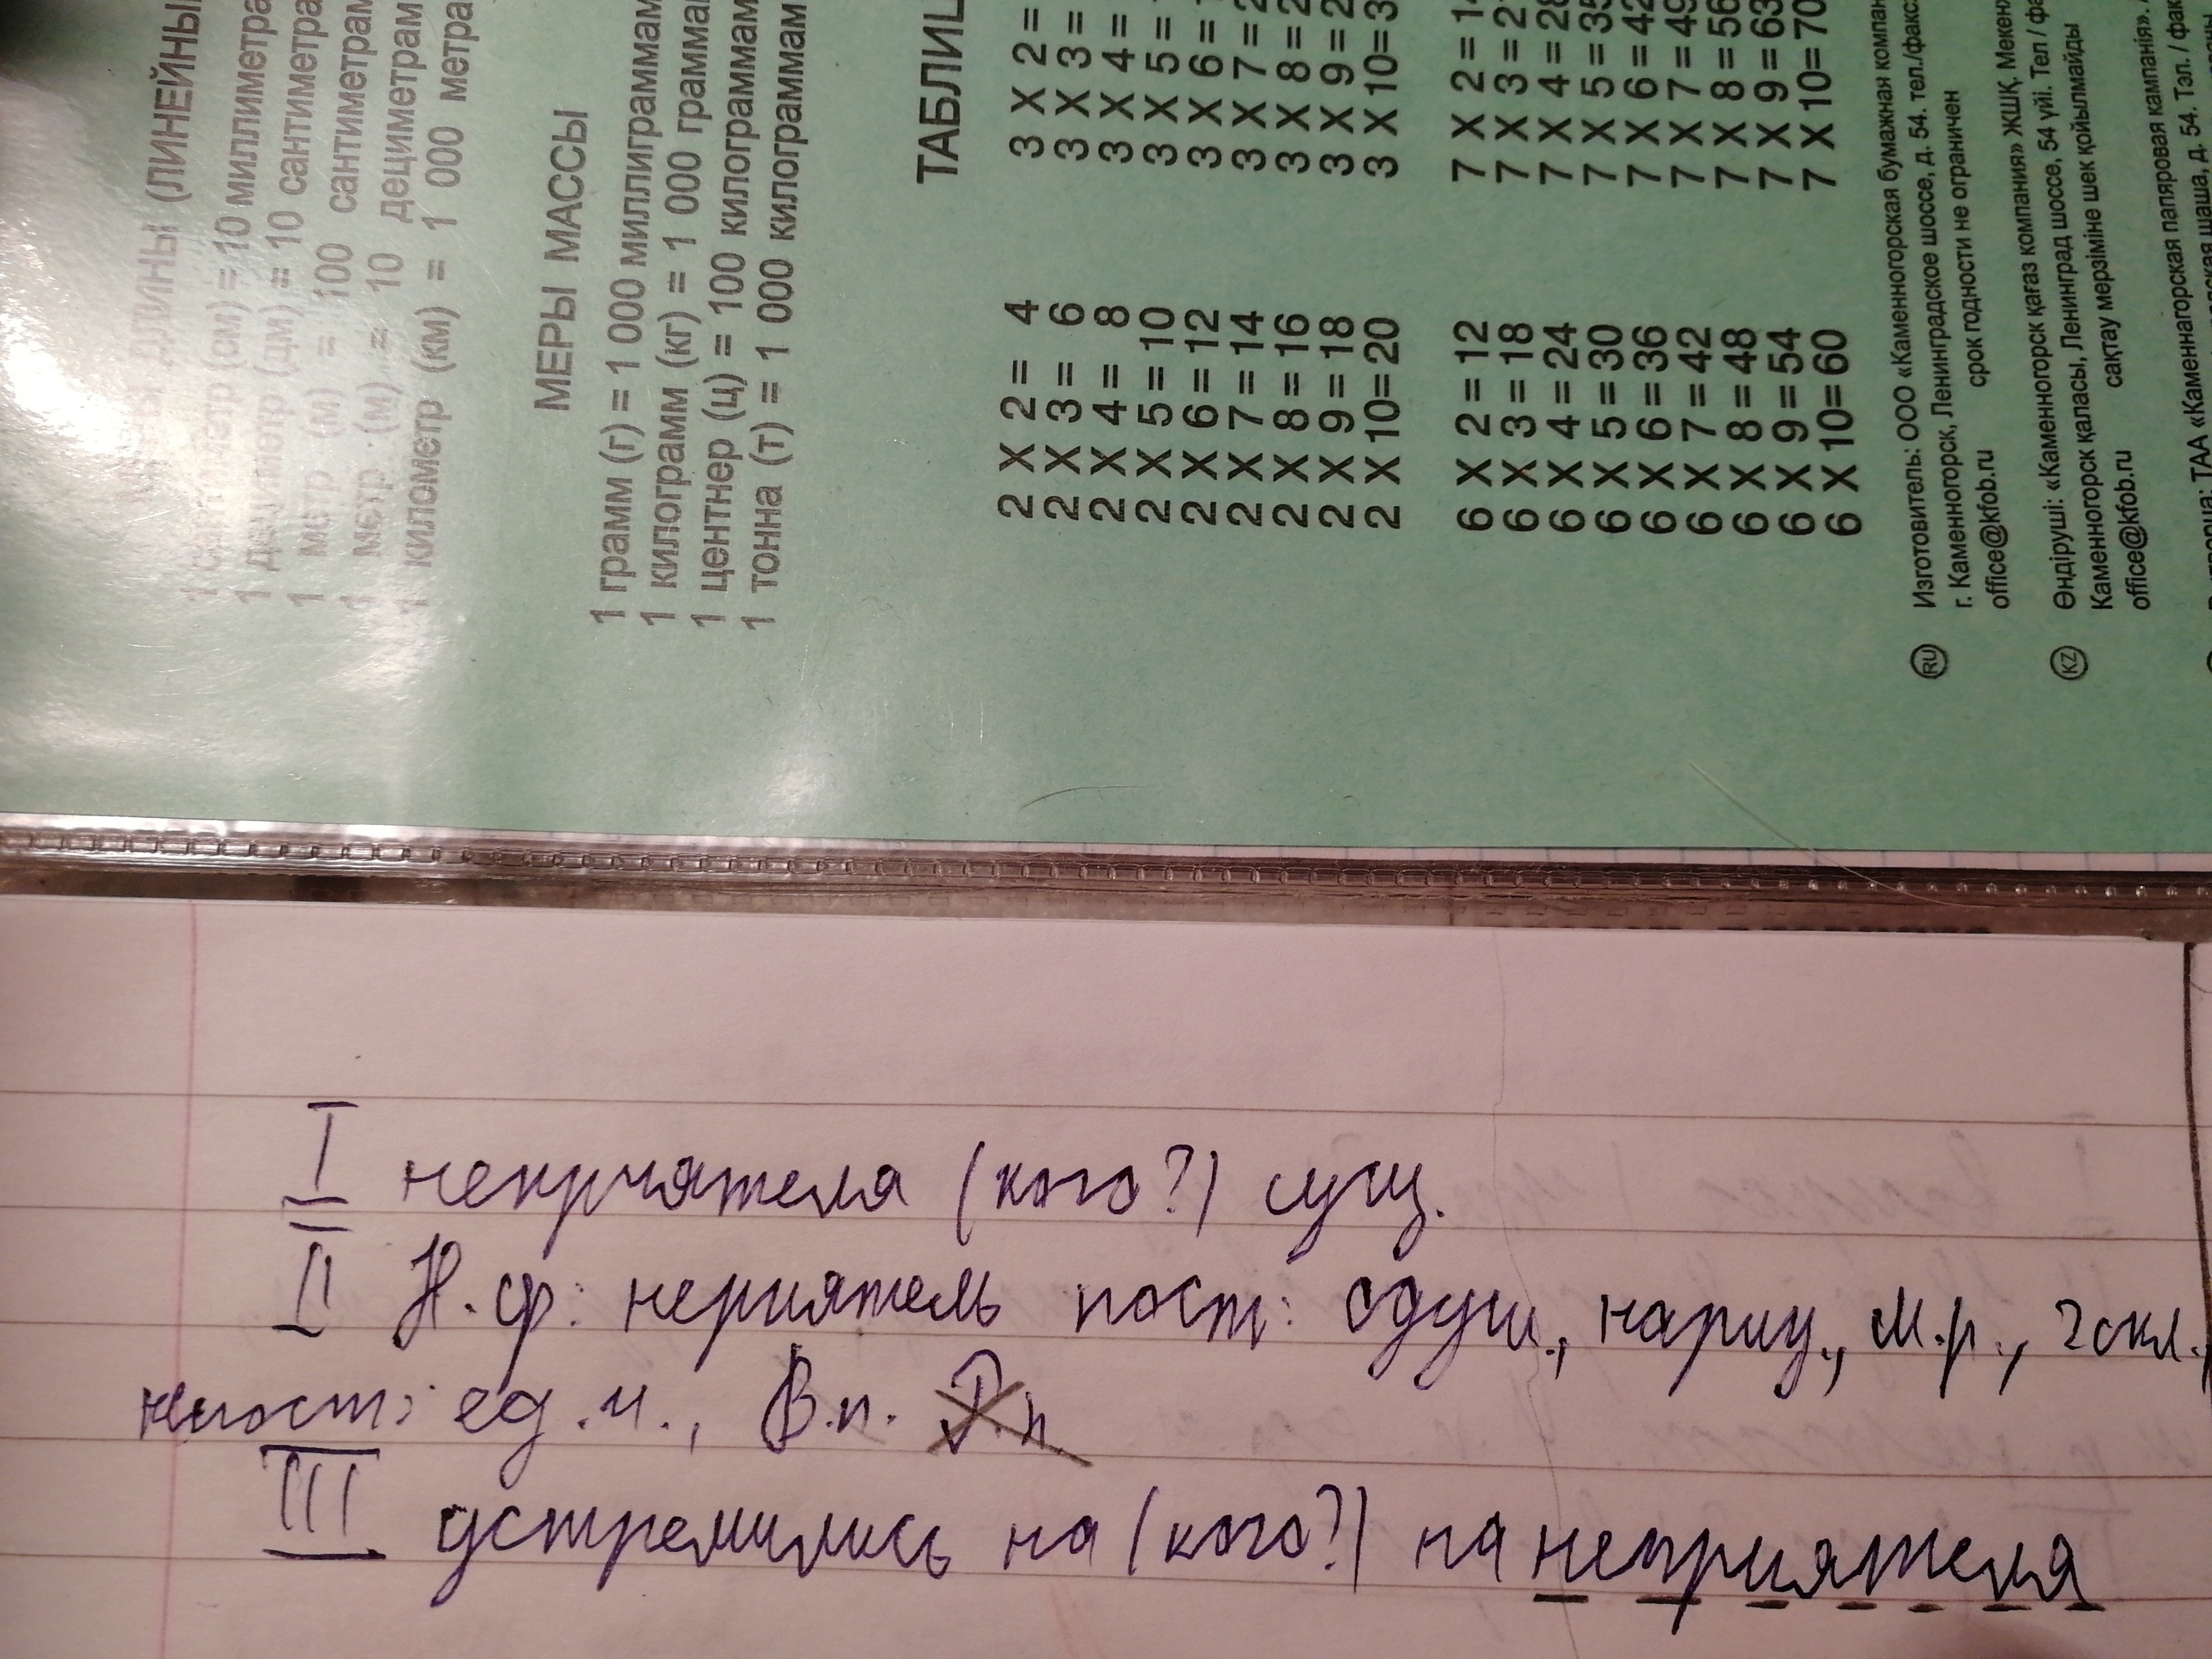 ДЛИНЫ (ЛИНЕЙНЫ
(см) = 10 миллиметра
1 дециметр (дм) = 10 сантиметра
1 метр (м) = 100 сантиметрам
1 метр (м) = 10 дециметрам
1 километр (км) = 1 000 метра
МЕРЫ МАССЫ
1 грамм (г) = 1 000 миллиграммам
1 килограмм (кг) = 1 000 граммам
1 центнер (ц) = 100 килограммам
1 тонна (т) = 1 000 килограммам
ТАБЛИЦ
2 X 2 = 4
2 X 3 = 6
2 X 4 = 8
2 X 5 = 10
2 X 6 = 12
2 X 7 = 14
2 X 8 = 16
2 X 9 = 18
2 X 10= 20
3 X 2 =
3 X 3 =
3 X 4 =
3 X 5 =
3 X 6 = 1
3 X 7 = 2
3 X 8 = 2
3 X 9 = 2
3 X 10= 3
6 X 2 = 12
6 X 3 = 18
6 X 4 = 24
6 X 5 = 30
6 X 6 = 36
6 X 7 = 42
6 X 8 = 48
6 X 9 = 54
6 X 10= 60
7 X 2 = 14
7 X 3 = 21
7 X 4 = 28
7 X 5 = 35
7 X 6 = 42
7 X 7 = 49
7 X 8 = 56
7 X 9 = 63
7 X 10= 70
RU Изготовитель: ООО «Каменногорская бумажная компан
г. Каменногорск, Ленинградское шоссе, д. 54. тел./факс:
office@kfob.ru срок годности не ограничен
KZ Өндіруші: «Каменногорск қағаз компания» ЖШҚ. Мекен
Каменногорск қаласы, Ленинград шоссе, 54 үйі. Тел / фа
office@kfob.ru сақтау мерзіміне шек қойылмайды
ТАА «Каменнагорская папяровая кампанія».
шаша, д. 54. Тэл. / фак
I неприятеля (кого?) сущ.
II Н.ф: нериятель пост: одуш., нариц., м.р., 2 скл.,
непост: ед.ч., В.п. Р.п.
III устремились на (кого?) на неприятеля